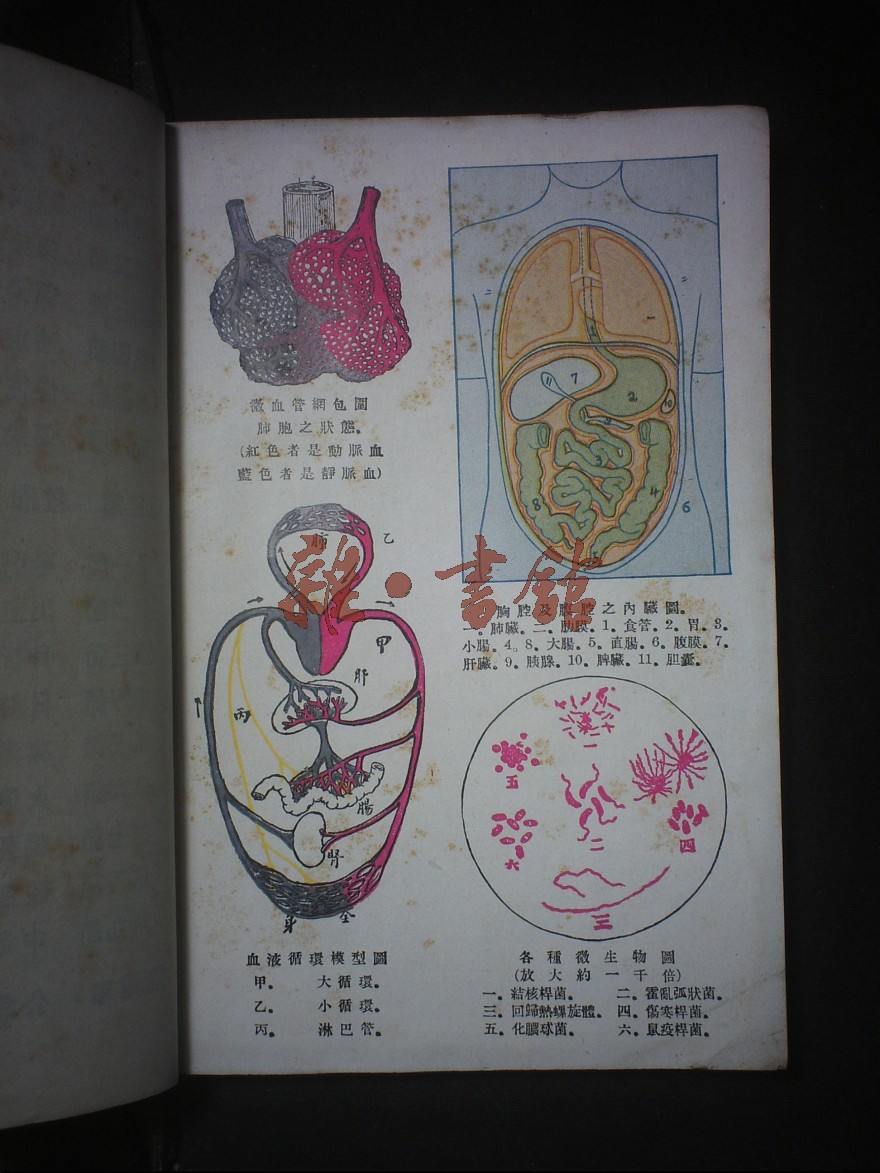 微血管網包圍
肺胞之狀態。
(紅色者是動脈血
藍色者是靜脈血)
1
7
11
2
10
9
3
8
4
6
5
胸腔及腹腔之內臟圖。
一。肺臟。二。肋膜。1。食管。2。胃。3。
小腸。4。8。大腸。5。直腸。6。腹膜。7。
肝臟。9。胰腺。10。脾臟。11。胆囊。
肺
乙
甲
肝
丙
腸
腎
全
身
血液循環模型圖
甲。 大循環。
乙。 小循環。
丙。 淋巴管。
一
五
二
四
六
三
各種微生物圖
(放大約一千倍)
一。結核桿菌。 二。霍亂弧狀菌。
三。回歸熱螺旋體。 四。傷寒桿菌。
五。化膿球菌。 六。鼠疫桿菌。
雜·書館